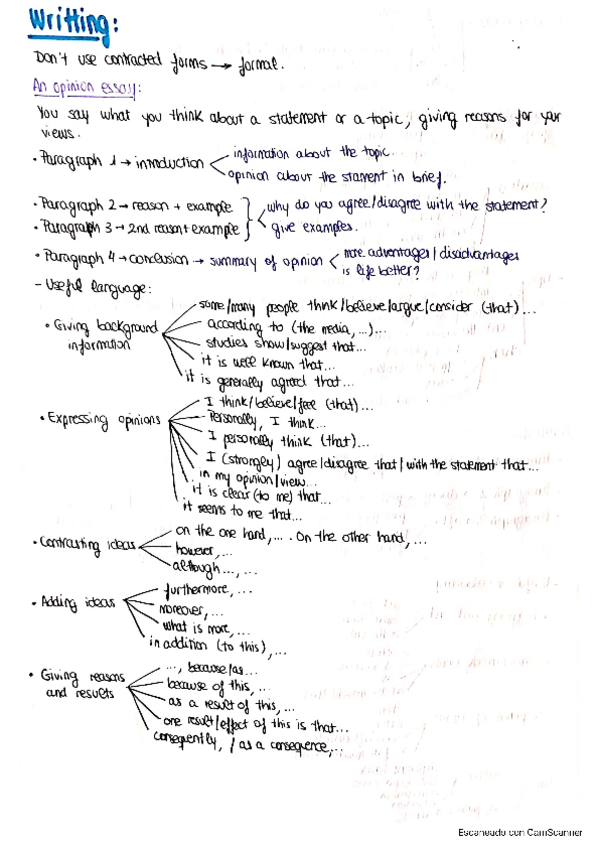 Writting:
Don't use contracted forms → formal.
An opinion essay:
You say what you think about a statement or a topic, giving reasons for your
views.
• Paragraph 1 → introduction
information about the topic.
opinion about the stament in brief.
• Paragraph 2 → reason + example
• Paragraph 3 → 2nd reason + example
why do you agree/disagree with the statement?
give examples.
• Paragraph 4 → conclusion → summary of opinion
more advantages/disadvantages
is life better?
- Useful language:
• Giving background
information
some/many people think/believe/argue/consider (that)...
according to (the media, ...)...
studies show/suggest that...
it is well known that...
it is generally agreed that...
• Expressing opinions
I think/believe/feel (that)...
Personally, I think...
I personally think (that)...
I (strongley) agree/disagree that/with the statement that...
in my opinion/view...
it is clear (to me) that...
it seems to me that...
• Contrasting ideas
on the one hand, .... On the other hand, ...
however, ...
although ..., ...
• Adding ideas
furthermore, ...
moreover, ...
what is more, ...
in addition (to this), ...
• Giving reasons
and results
..., because/as...
because of this, ...
as a result of this, ...
one result/effect of this is that...
consequently, / as a consequence, ...
Escaneado con CamScanner